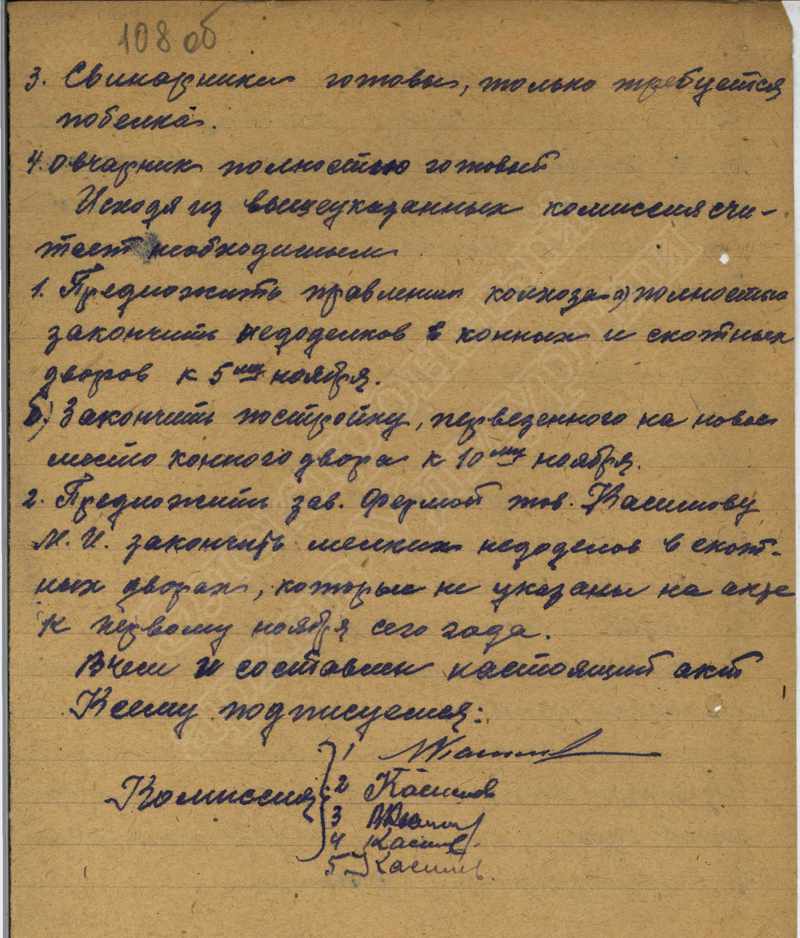 108 об
3. Свинарники готовы, только требуется
побелка.
4. Овчарник полностью готовый
Исходя из вышеуказанных комиссия счи-
тает необходимым
1. Предложить правлению колхоза а) полностью
закончить недоделков в конных и скотных
дворов к 5му ноября.
б) Закончить постройку, переведенного на новое
место конного двора к 10му ноября.
2. Предложить зав. фермой тов. Касимову
М. И. закончить мелких недоделов в скот-
ных дворах, которые не указаны на акте
к первому ноября сего года.
В чем и составлен настоящий акт
К сему подписуемся:
Комиссия
1
2 Касимов
3
4 Касимов
5 Касимов.